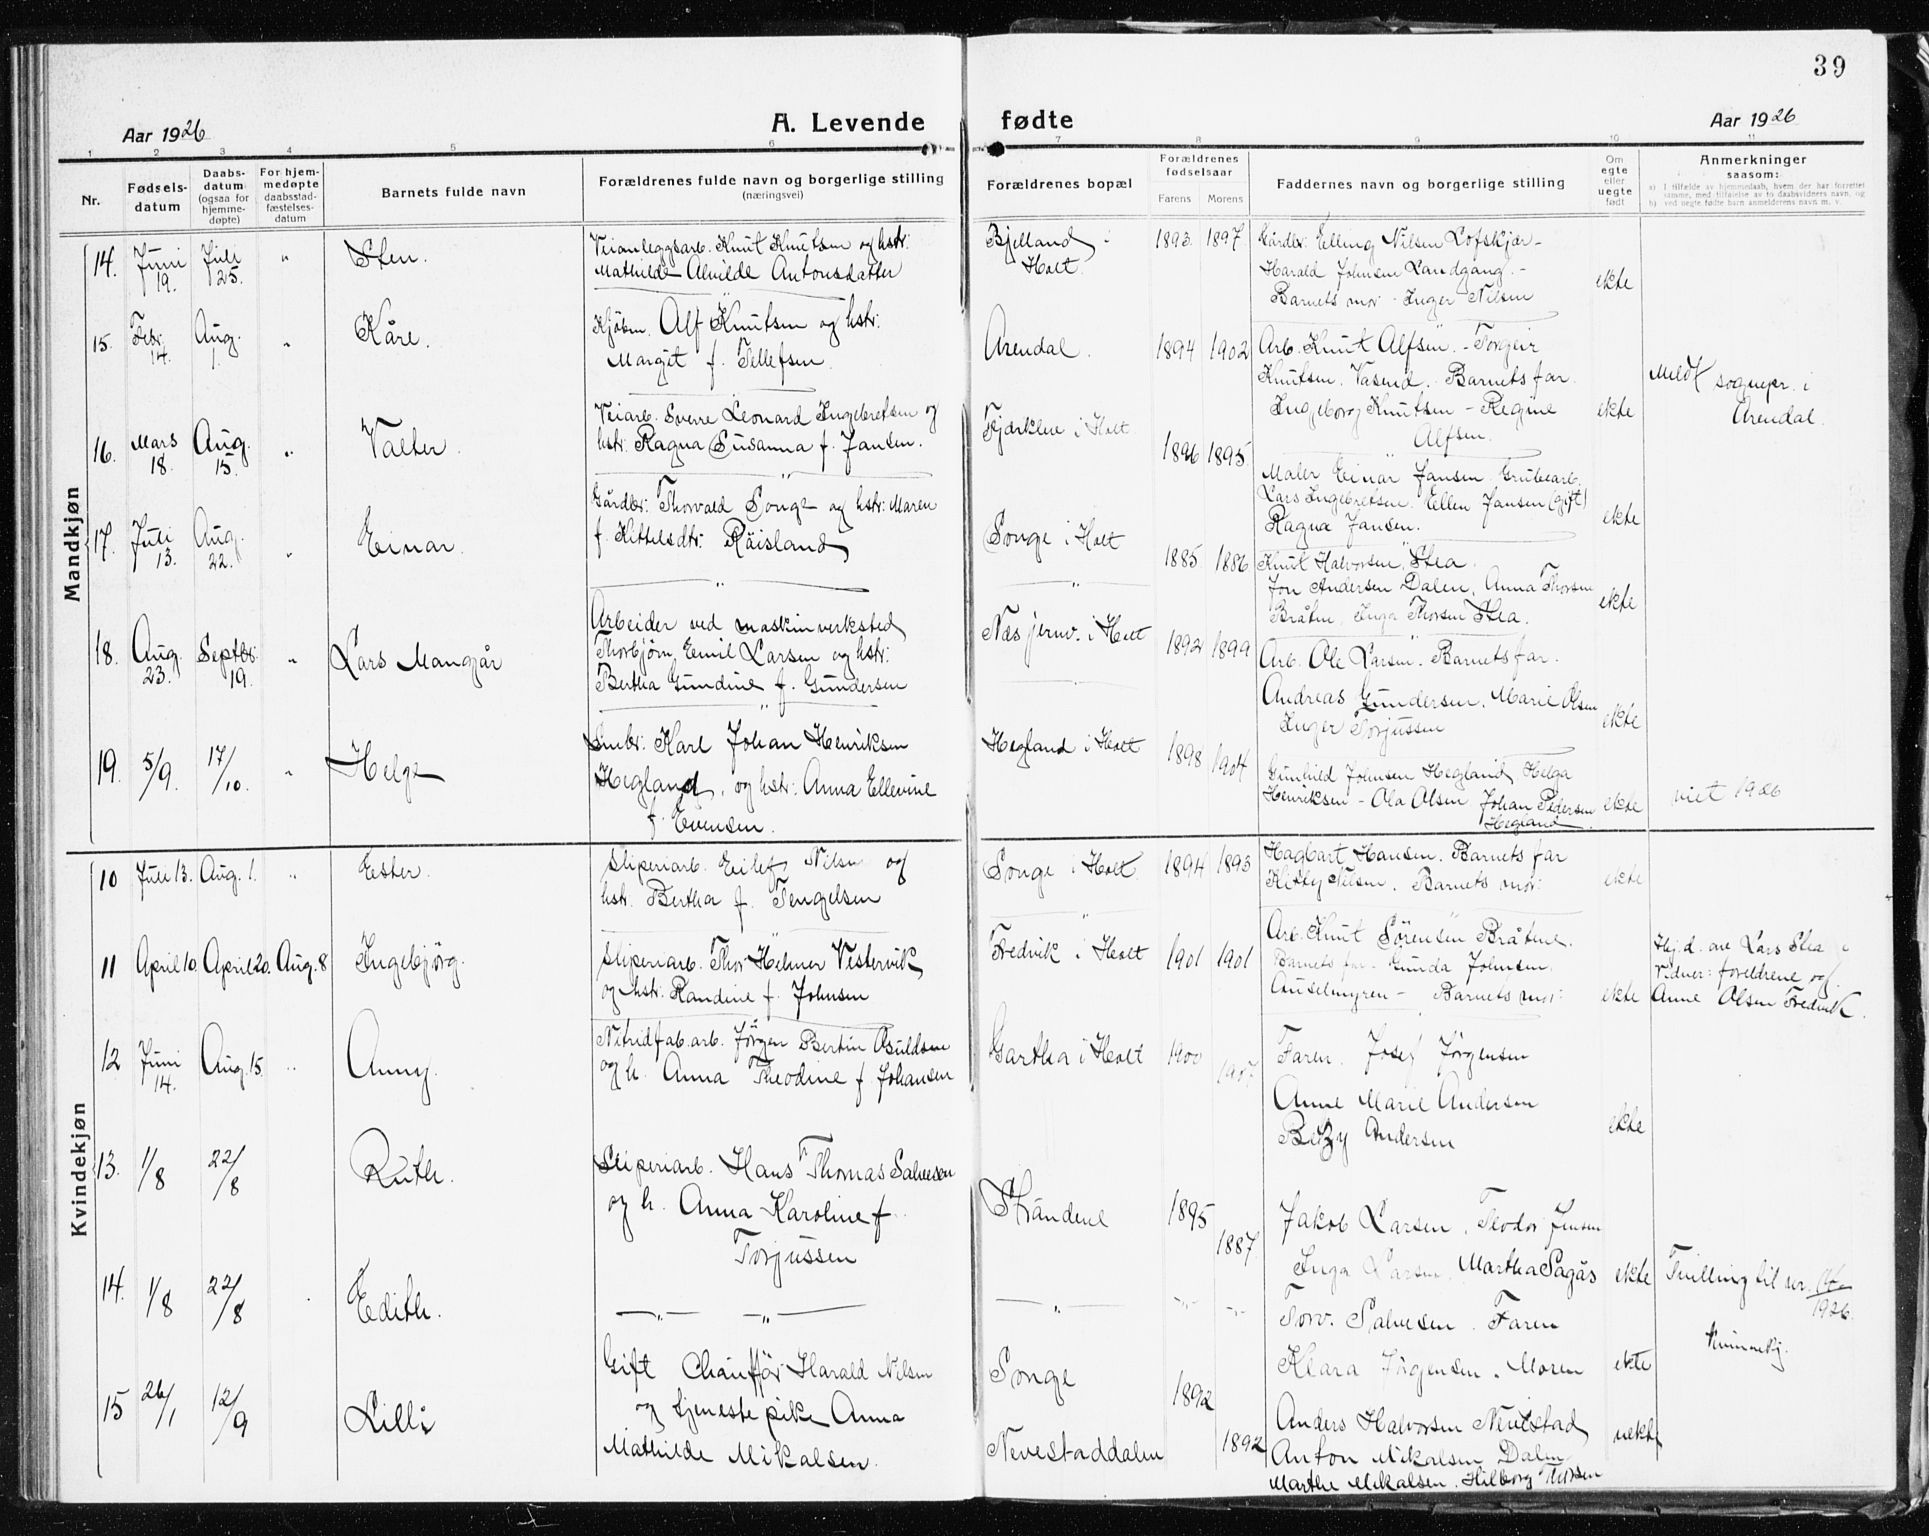 39
Aar 1926
A. Levende fødte
Aar 1926
1 2 3 4 5 6 7 8 9 10 11
Nr.
Fødsels-
datum
Daabs-
datum
(ogsaa for
hjemme-
døpte)
For hjem-
medøpte
daabsstad-
fæstelses-
datum
Barnets fulde navn
Forældrenes fulde navn og borgerlige stilling
(næringsvei)
Forældrenes bopæl
Forældrenes
fødselsaar
Farens Morens
Faddernes navn og borgerlige stilling
Om
egte
eller
uegte
født
Anmerkninger
saasom:
a) I tilfælde av hjemmedaab, hvem der har forrettet
samme, med tilføielse av to daabsvidners navn, og
b) ved uegte fødte barn anmelderens navn m. v.
Mandkjøn
14. Juni 19. Juli 25. " Sten.
Veianleggsarb. Knut Knutsen og hstr:
Mathilde Alvilde Antonsdatter
Bjelland i
Holt.
1893. 1897.
Gårdbr: Elling Nilsen Lofskjær -
Harald Johnsen Landgang. -
Barnets mor - Inger Nilsen
ekte
15. Febr. 14. Aug. 1. " Kåre.
Kjøbm. Alf Knutsen og hstr:
Margit f. Tellefsen.
Arendal.
1894 1902
Arb. Knut Alfsen. - Torgeir
Knutsen. Vasend. Barnets far.
Ingeborg Knutsen - Regine
Alfsen.
ekte
Meldt sognepr. i
Arendal.
16. Mars 18. Aug. 15. " Valter.
Veiarb. Sverre Leonard Ingebretsen og
hstr: Ragna Susanna f. Jansen.
i Holt.
1896 1895.
Maler Einar Jansen, Grubearb.
Lars Ingebretsen. Ellen Jansen (gift)
Ragna Jansen.
ekte
17. Juli 13. Aug. 22. " Einar.
Gårdbr: Thorvald Songe og hstr: Maren
f. Kittelsdtr: Røisland
Songe i Holt
1885 1886
Knut Halvorsen Stea.
Jon Andersen Dalen, Anna Thorsen
Bråten, Inga Thorsen Stea.
ekte
18. Aug. 23. Septbr: 19. " Lars Mangår
Arbeider ved maskinverksted
Thorbjørn Emil Larsen og hstr:
Bertha Gundine f. Gundersen
Næs jernv. i Holt
1892 1899
Arb. Ole Larsen. Barnets far.
Andreas Gundersen, Marie Olsen
Inger Torjussen
ekte
19. 5/9. 17/10. " Helge
Smbr: Karl Johan Henriksen
Hegland, og hstr: Anna Ellevine
f. Evensen.
Hegland i Holt
1898 1904
Gunhild Johnsen Hegland, Helga
Henriksen - Ola Olsen Johan Pedersen
Hegland
ekte
viet 1926
Kvindekjøn
10 Juli 13. Aug. 1. " Ester.
Sliperiarb. Eilef Nilsen og
hstr. Bertha f. Tengelsen
Songe i Holt.
1894 1893
Hagbart Hansen. Barnets far
Kitty Nilsen. Barnets mor:
ekte
11 April 10. April 20. Aug. 8 Ingebjørg.
Sliperiarb. Thor Helmer Vestervik
og hstr: Randine f. Johnsen
Fredvik i Holt
1901 1901
Arb. Knut Sørensen Bråtene.
Barnets far. Gunda Johnsen.
Auselmyren - Barnets mor:
ekte
Hj.d. av Lars Stea
Vidner: foreldrene og
Anne Olsen Fredvik.
12 Juni 14. Aug. 15. " Anny.
Nitridfab.arb. Jørgen Bertin Osuldsen
og h. Anna Theodine f. Johansen
Gartha i Holt
1900 1907.
Faren. Josef Jørgensen
Anne Marie Andersen
Betzy Andersen
ekte
13. 1/8 22/8 Ruth.
Sliperiarb. Hans Thomas Salvesen
og h. Anna Karoline f.
Torjussen
Strandene
1895 1887.
Jakob Larsen, Teodor Jensen
Inga Larsen, Martha Sagås
ekte
Tvilling til nr. 14/1926.
kvinnekj.
14. 1/8 22/8 Edith.
— " — — " —
— " — - " - - " -
Torv. Salvesen. Faren
Klara Jørgensen. Moren
ekte
15 26/1 12/9 Lilli
Gift Chauffør Harald Nilsen
og tjenestepike Anna
Mathilde Mikalsen.
Songe
Nevestaddalen
1892 1892
Anders Halvorsen Nevestad
Anton Mikalsen Dalen
Marthe Mikalsen. Hilborg Thorsen
uekte